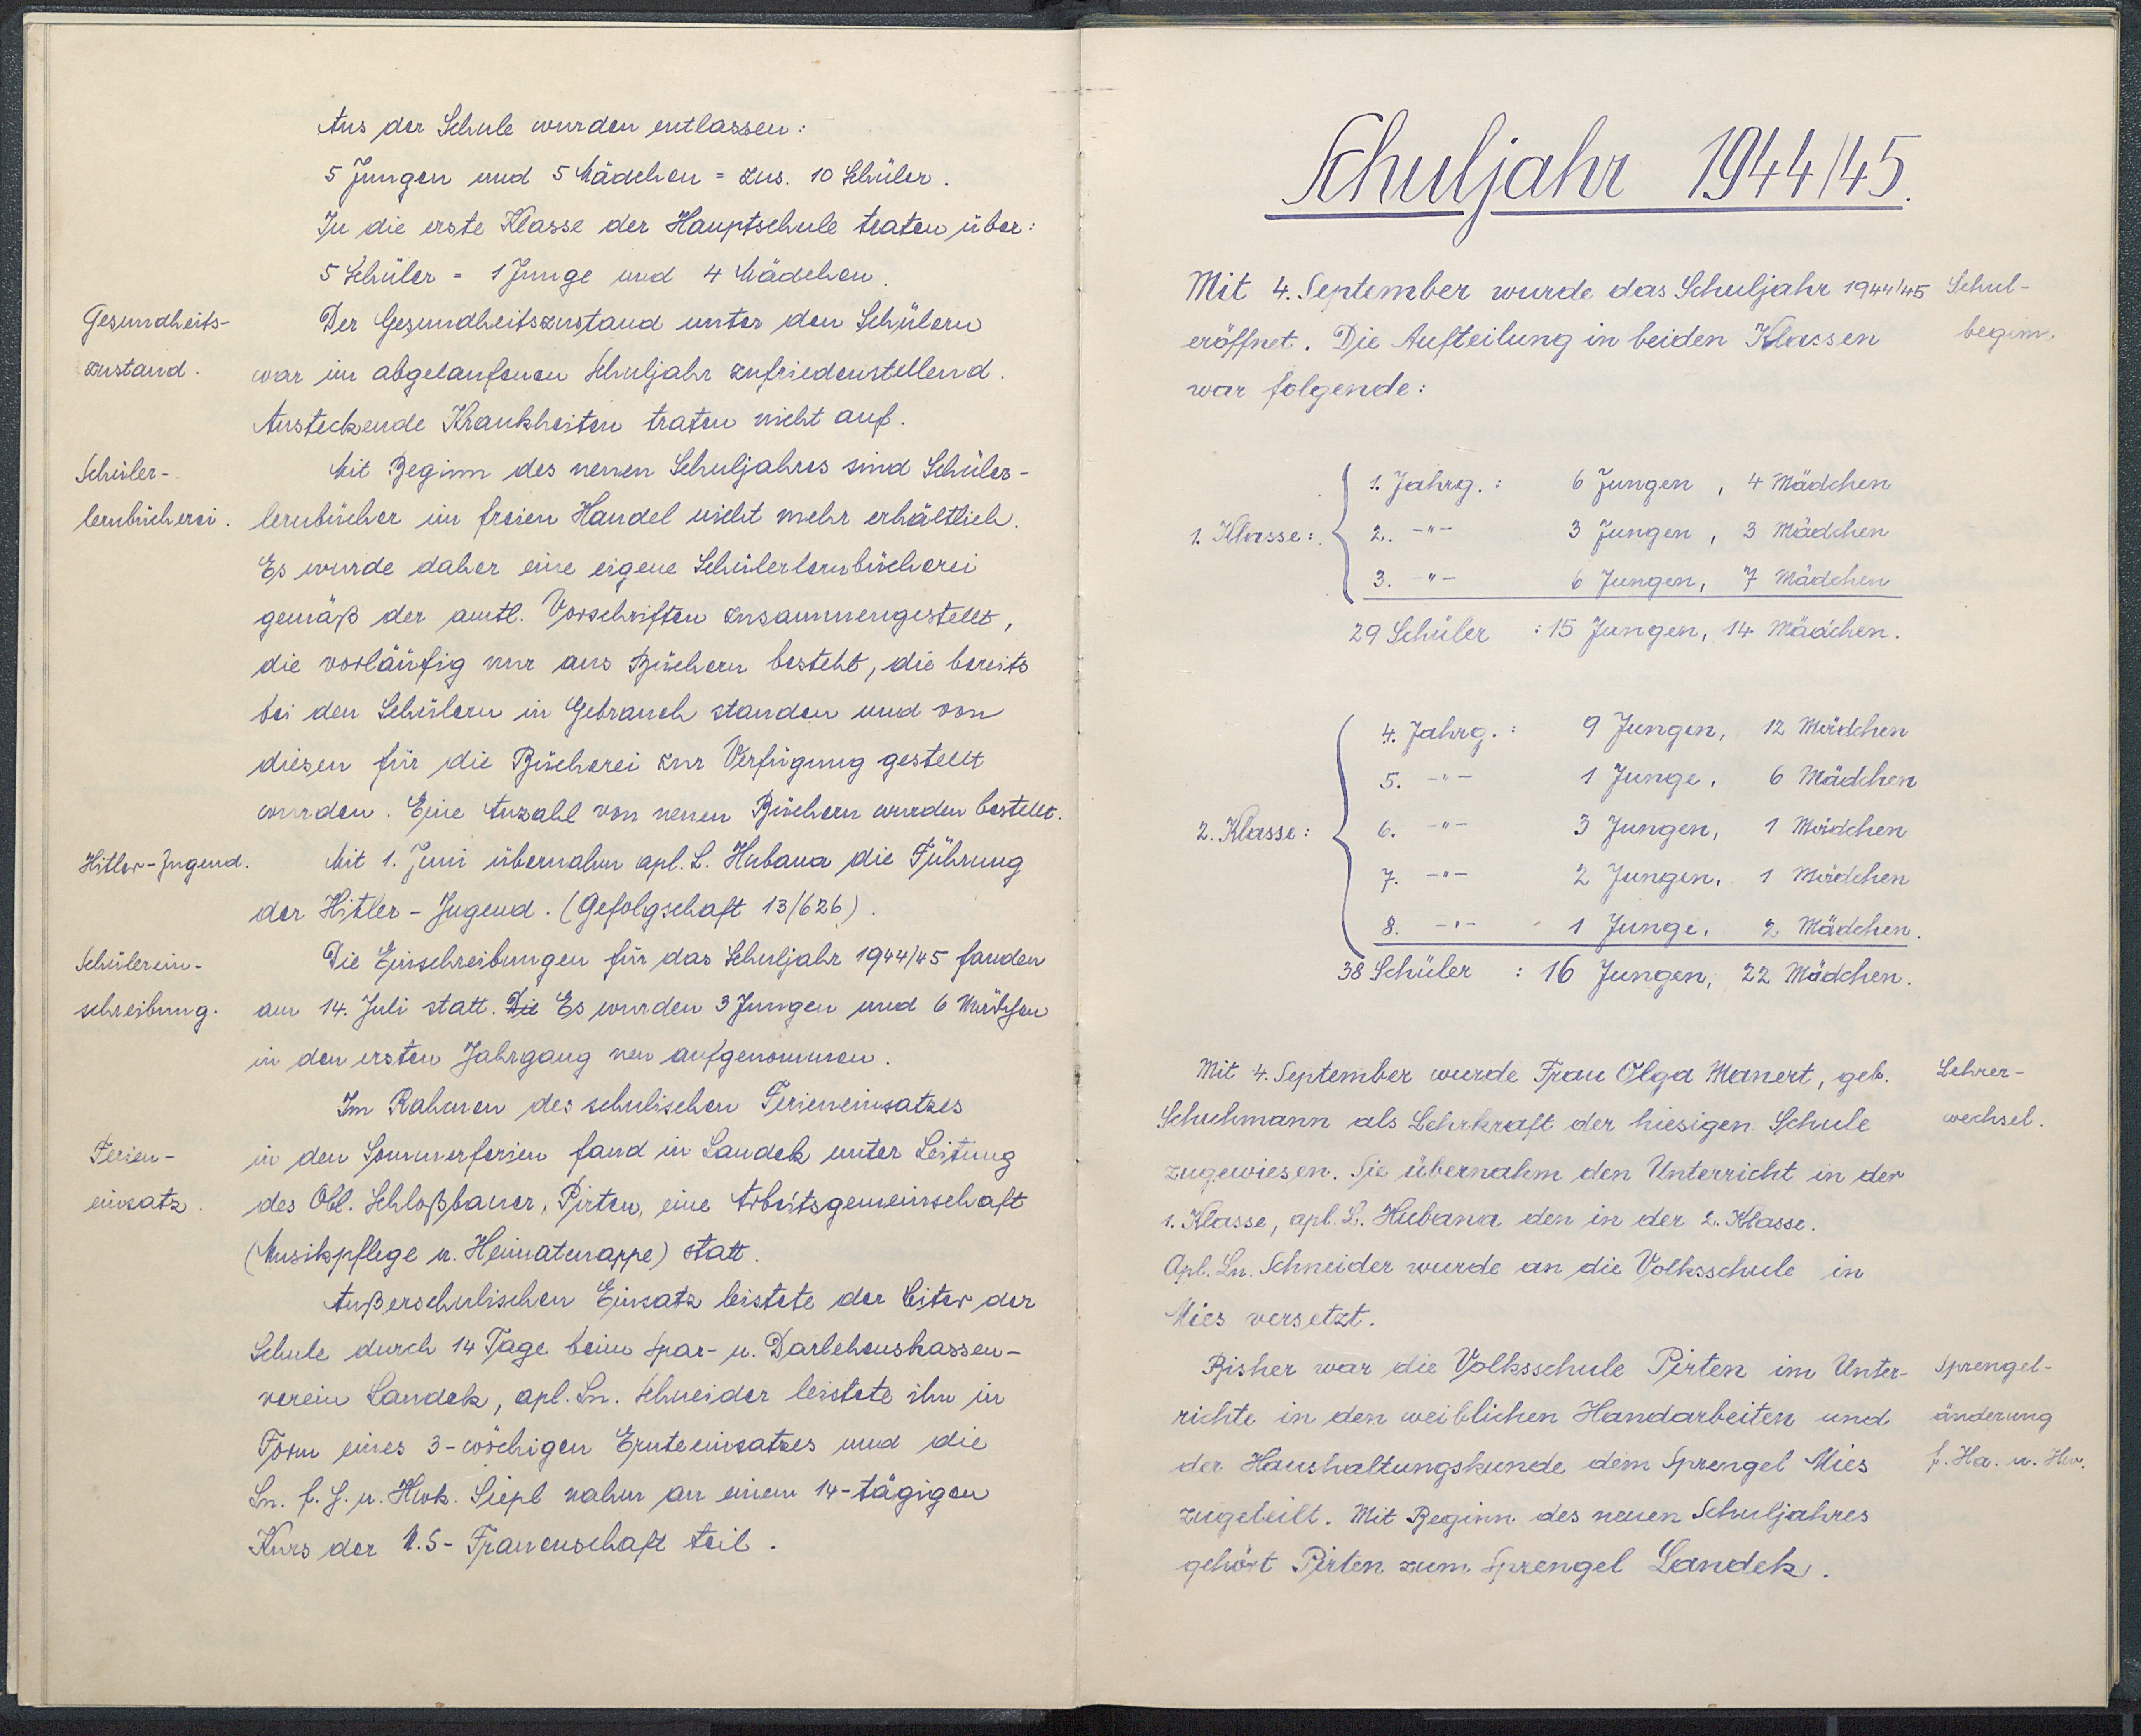 Aus der Schule wurden entlassen:
5 Jungen und 5 Mädchen = zus. 10 Schüler.
In die erste Klasse der Hauptschule traten über:
5 Schüler = 1 Junge und 4 Mädchen.
Gesundheits-
zustand.
Der Gesundheitszustand unter den Schülern
war im abgelaufenen Schuljahr zufriedenstellend.
Ansteckende Krankheiten traten nicht auf.
Schüler-
lernbücherei.
Mit Beginn des neuen Schuljahres sind Schüler-
lernbücher im freien Handel nicht mehr erhältlich.
Es wurde daher eine eigene Schülerlernbücherei
gemäß der amtl. Vorschriften zusammengestellt,
die vorläufig nur aus Büchern besteht, die bereits
bei den Schülern in Gebrauch standen und von
diesen für die Bücherei zur Verfügung gestellt
wurden. Eine Anzahl von neuen Büchern wurden bestellt.
Hitler-Jugend.
Mit 1. Juni übernahm apl. L. Hubana die Führung
der Hitler-Jugend. (Gefolgschaft 13/626).
Schülerein-
schreibung.
Die Einschreibungen für das Schuljahr 1944/45 fanden
am 14. Juli statt. Die Es wurden 3 Jungen und 6 Mädchen
in den ersten Jahrgang neu aufgenommen.
Im Rahmen des schulischen Ferieneinsatzes
Ferien-
einsatz.
in den Sommerferien fand in Landek unter Leitung
des Obl. Schloßbauer, Pirten, eine Arbeitsgemeinschaft
(Musikpflege u. Heimatmappe) statt.
Außerschulischen Einsatz leistete der Leiter der
Schule durch 14 Tage beim Spar- u. Darlehenskassen-
verein Landek, apl. Ln. Schneider leistete ihn in
Form eines 3-wöchigen Ernteeinsatzes und die
Ln. f. H. u. Hwk. Siepl nahm an einem 14-tägigen
Kurs der N.S-Frauenschaft teil.
Schuljahr 1944/45.
Mit 4. September wurde das Schuljahr 1944/45
eröffnet. Die Aufteilung in beiden Klassen
war folgende:
Schul-
beginn.
1. Klasse:
1. Jahrg.: 6 Jungen, 4 Mädchen
2. -"- 3 Jungen, 3 Mädchen
3. -"- 6 Jungen, 7 Mädchen
29 Schüler : 15 Jungen, 14 Mädchen.
2. Klasse:
4. Jahrg.: 9 Jungen, 12 Mädchen
5. -"- 1 Junge, 6 Mädchen
6. -"- 3 Jungen, 1 Mädchen
7. -"- 2 Jungen, 1 Mädchen
8. -"- 1 Junge, 2 Mädchen.
38 Schüler : 16 Jungen, 22 Mädchen.
Mit 4. September wurde Frau Olga Manert, geb.
Schuhmann als Lehrkraft der hiesigen Schule
zugewiesen. Sie übernahm den Unterricht in der
1. Klasse, apl. L. Hubana den in der 2. Klasse.
Apl. Ln. Schneider wurde an die Volksschule in
Mies versetzt.
Lehrer-
wechsel.
Bisher war die Volksschule Pirten im Unter-
richte in den weiblichen Handarbeiten und
der Haushaltungskunde dem Sprengel Mies
zugeteilt. Mit Beginn des neuen Schuljahres
gehört Pirten zum Sprengel Landek.
Sprengel-
änderung
f. Ha. u. Hw.